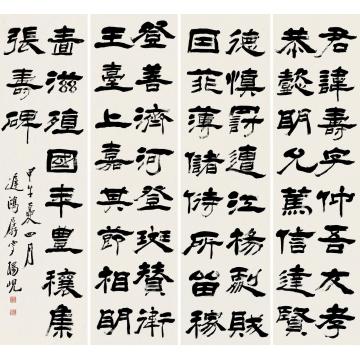 君諱壽字仲吾友孝
恭懿明允篤信達賢
德慎罰遭江楊劇賊
囯菲薄儲偫所畄稼
登善濟河登斑贊衛
王臺上嘉其節相明
嗇滋殖國年豊穰集
張壽碑
甲午夏四月